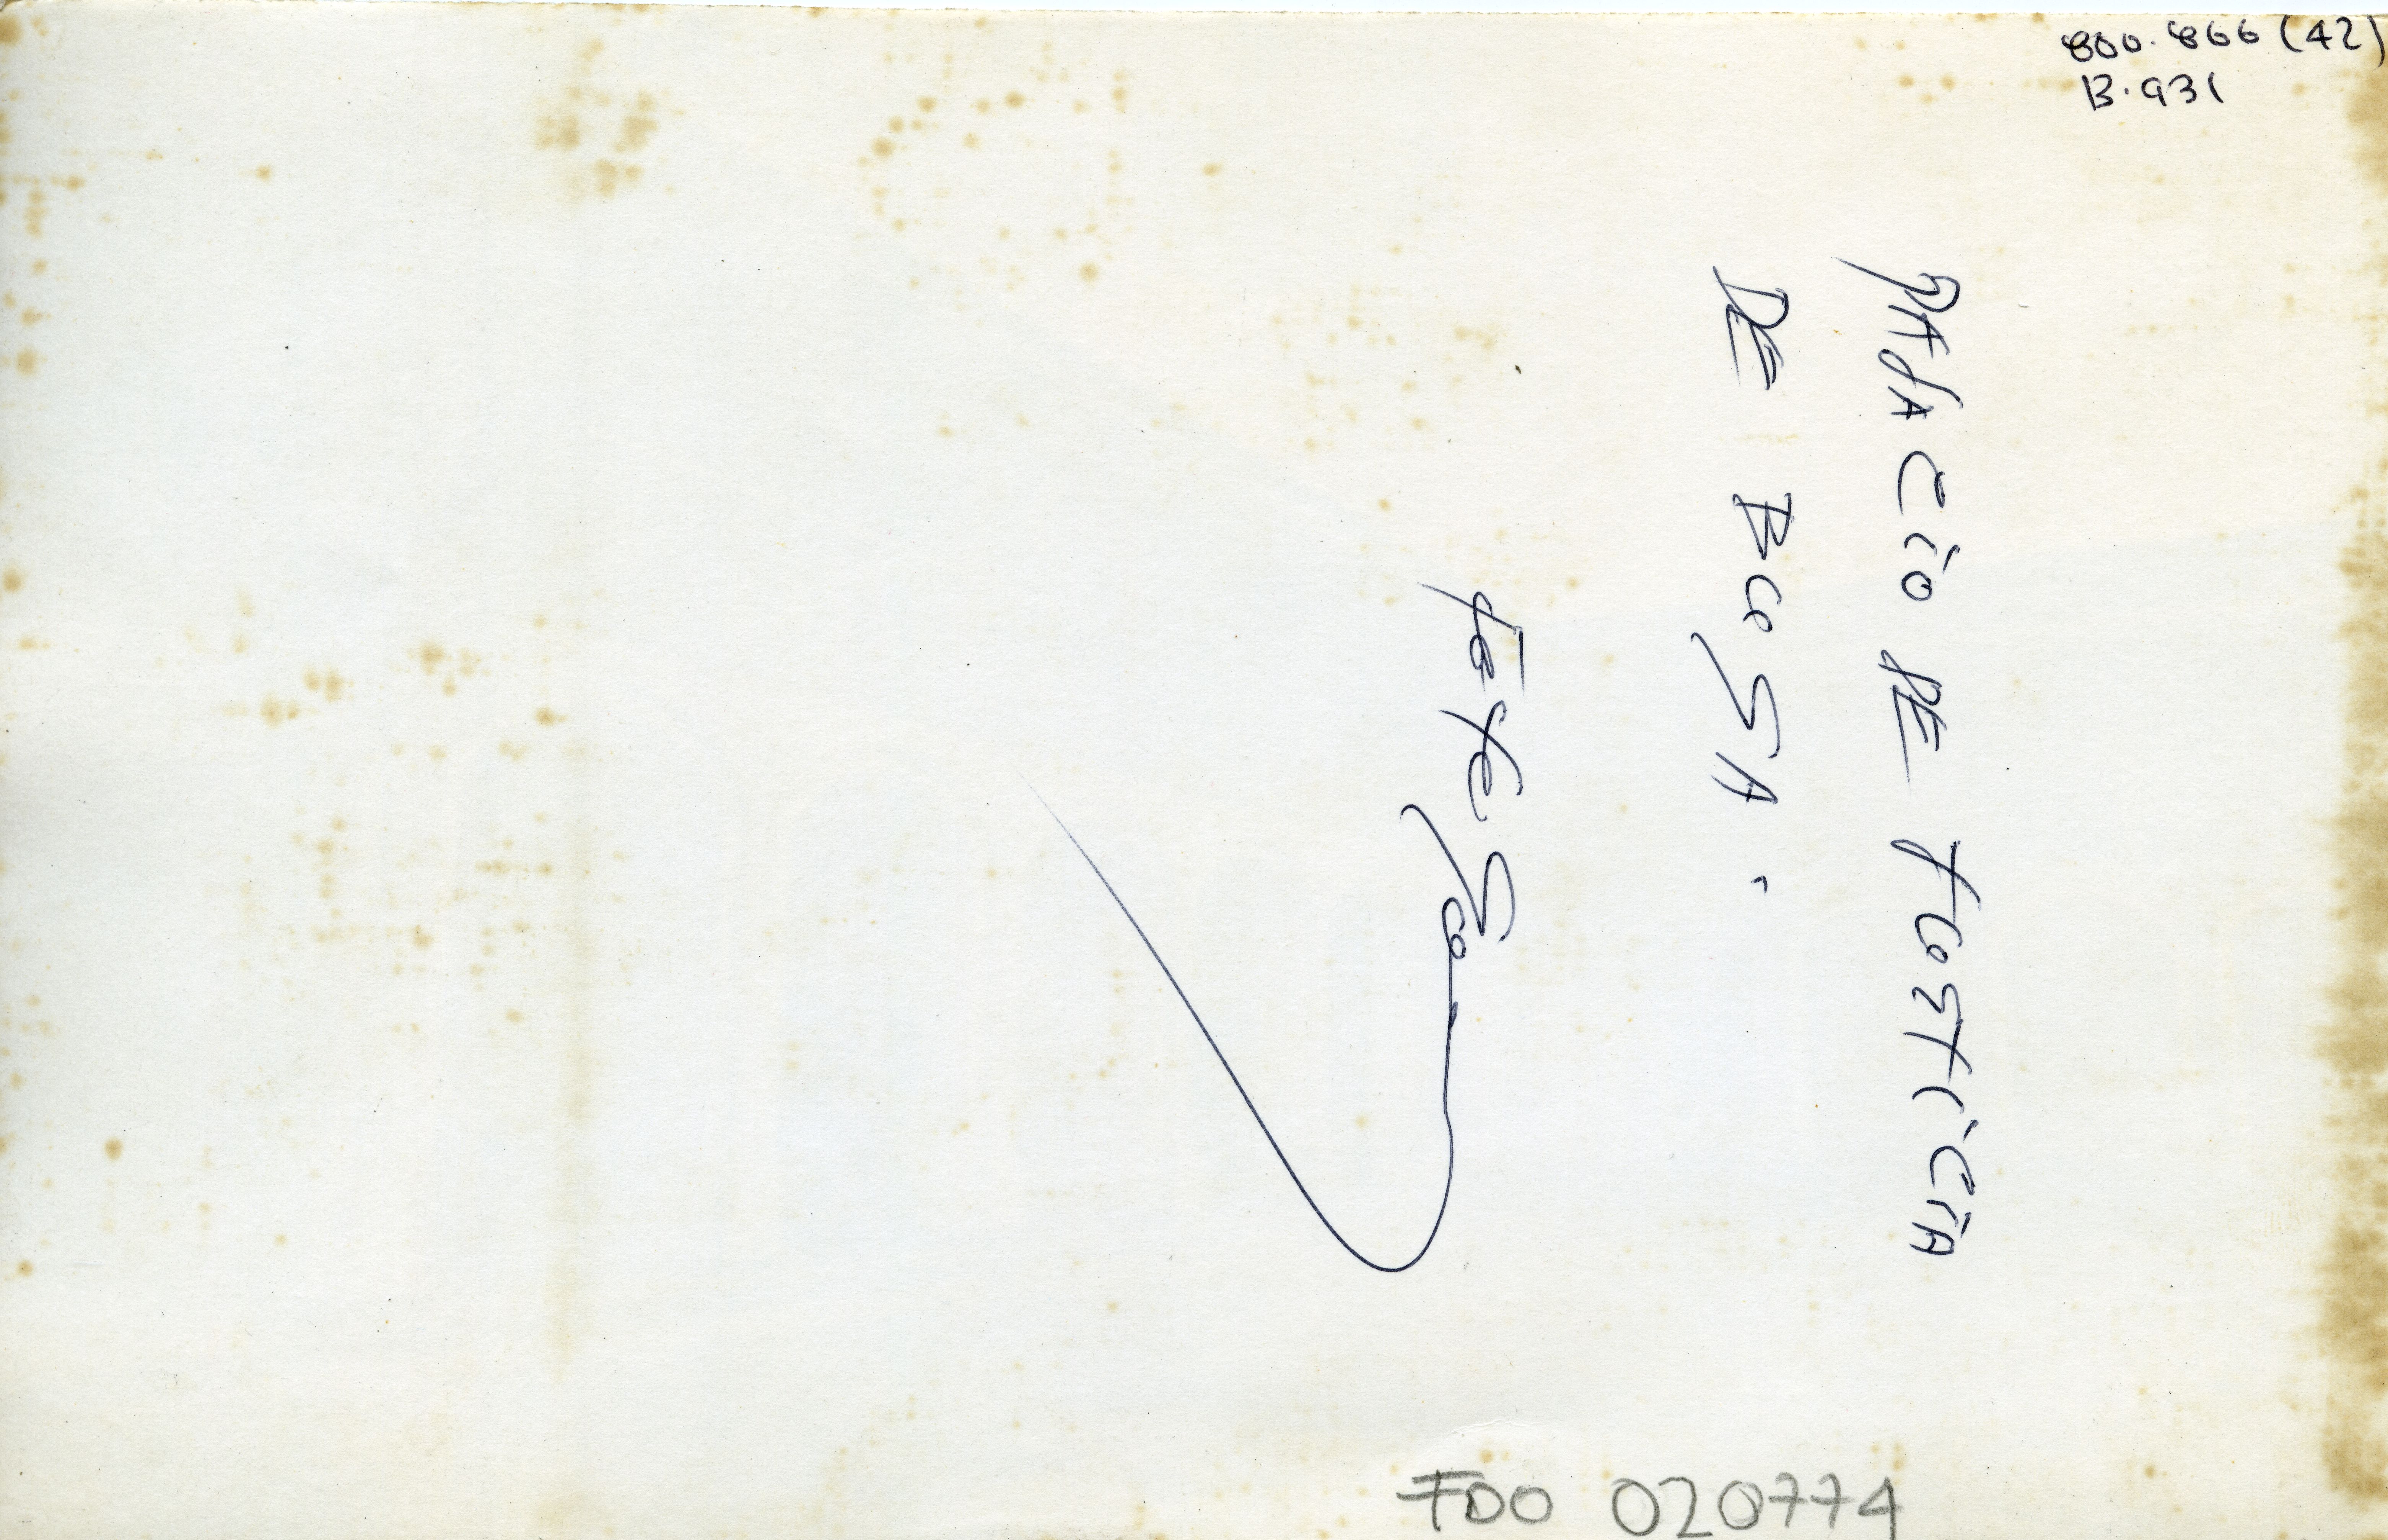 800.866 (42)
B.931
PALACIO DE JUSTICIA
DE BUGA.
FDO 020774